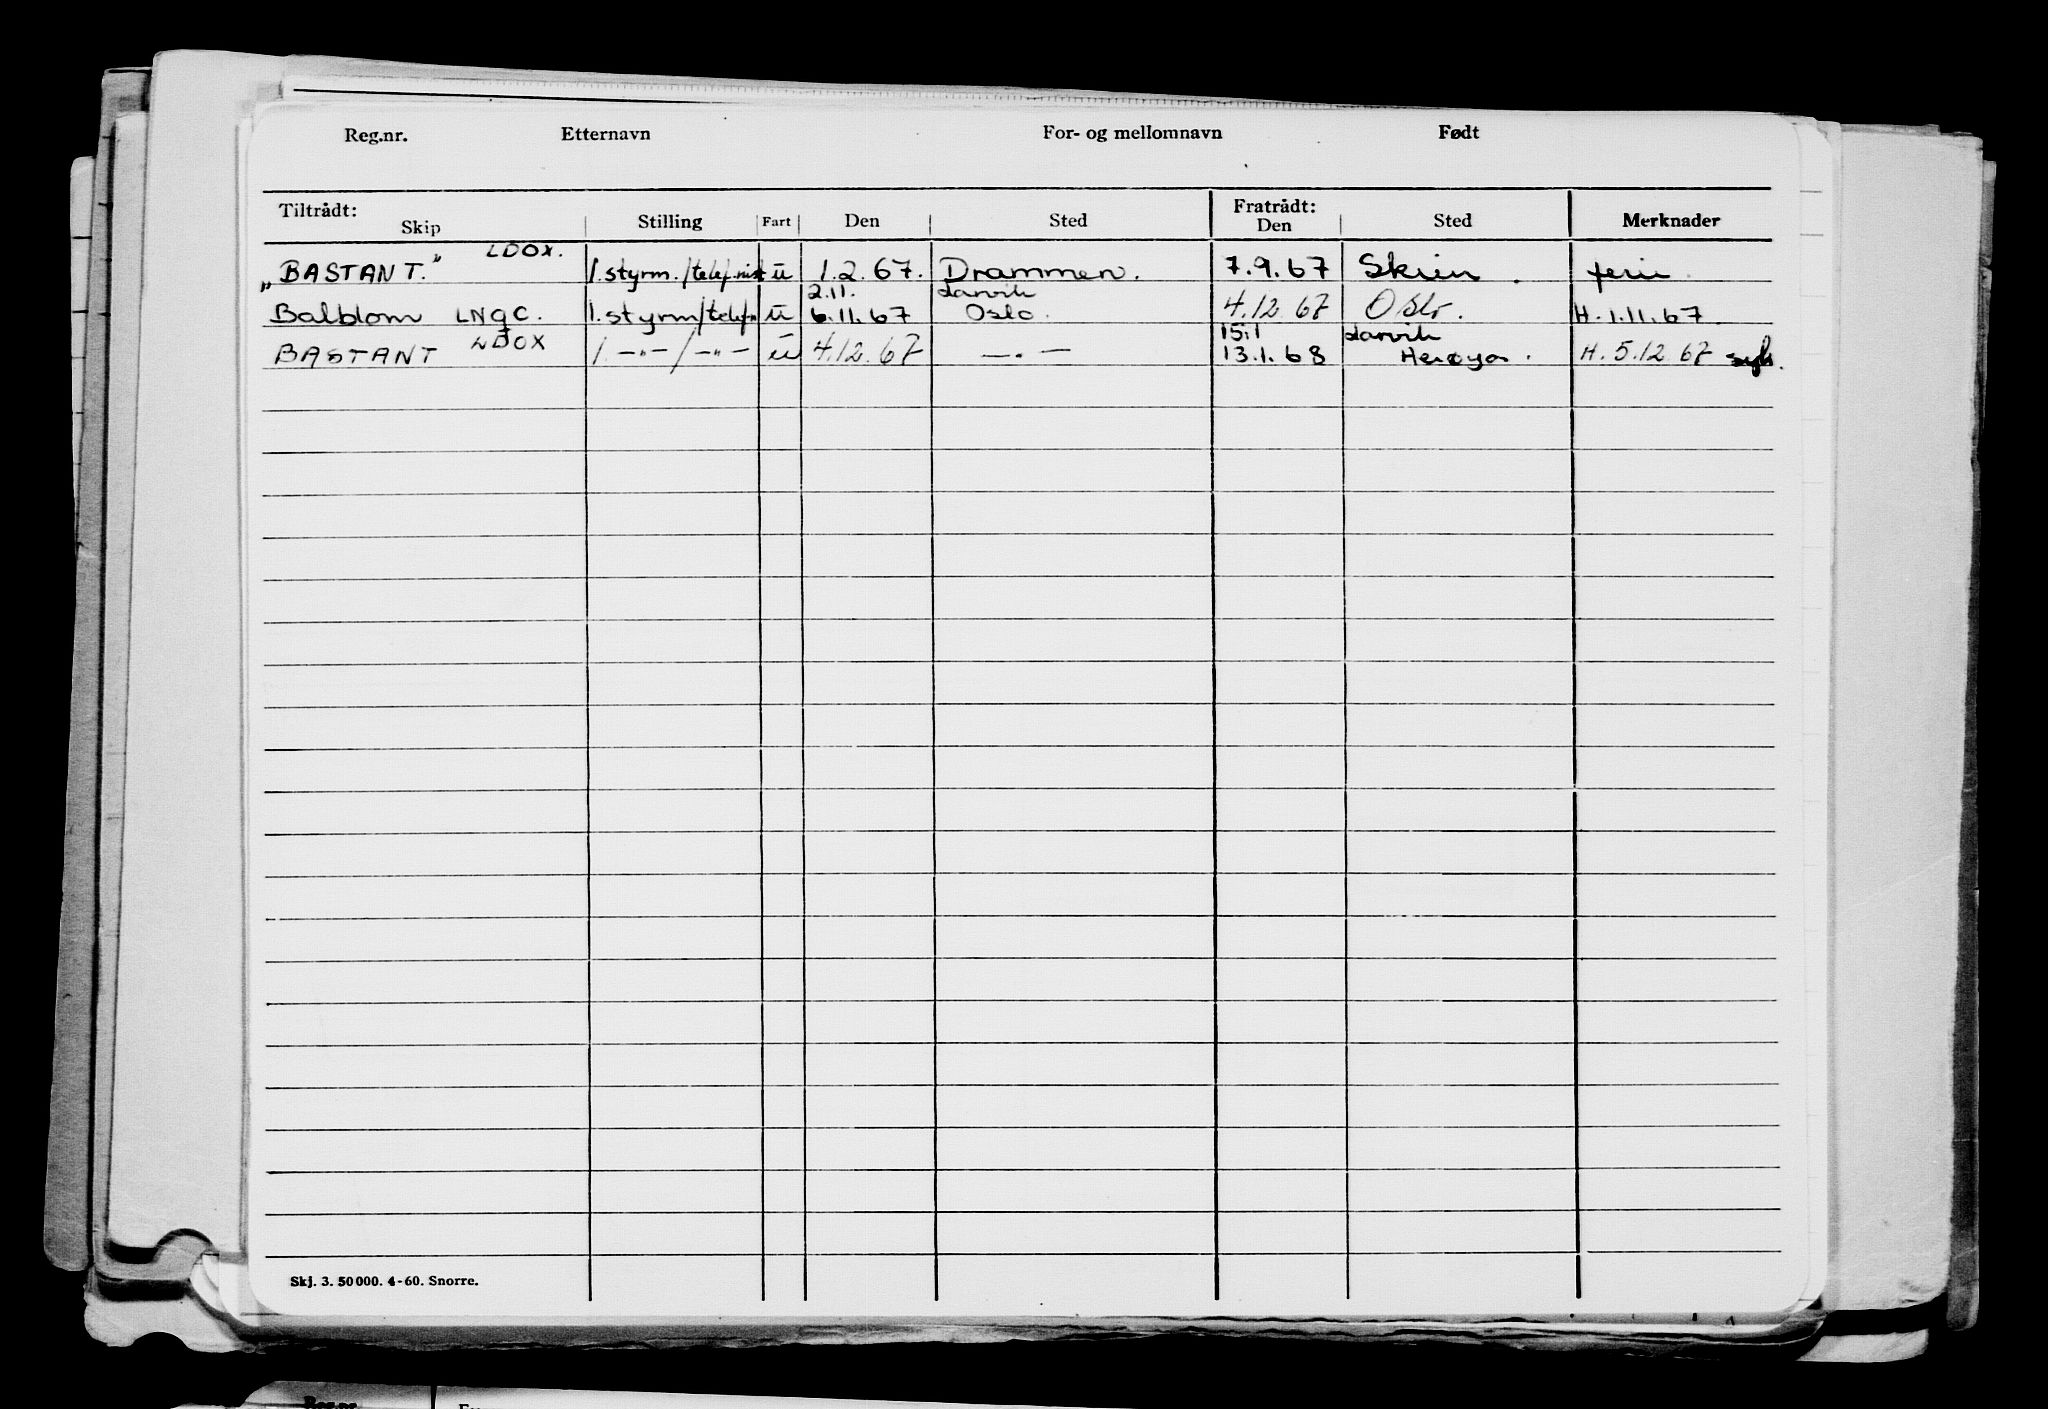 Reg.nr. Etternavn For- og mellomnavn Født
Tiltrådt: Fratrådt:
Skip Stilling Fart Den Sted Den Sted Merknader
„BASTANT.” LDOX. 1.styrm./telef.nist ü 1.2.67. Drammen. 7.9.67 Skien. ferie.
2.11. Larvik
Balblom LNGC. 1.styrm/telef.n ü 6.11.67 Oslo. 4.12.67 Oslo. H. 1.11.67
15.1 Larvik
BASTANT LDOX 1. -"- / -"- ü 4.12.67 -"- 13.1.68 Herøya. H. 5.12.67 syk.
Skj. 3. 50 000. 4-60. Snorre.
Reg.nr.